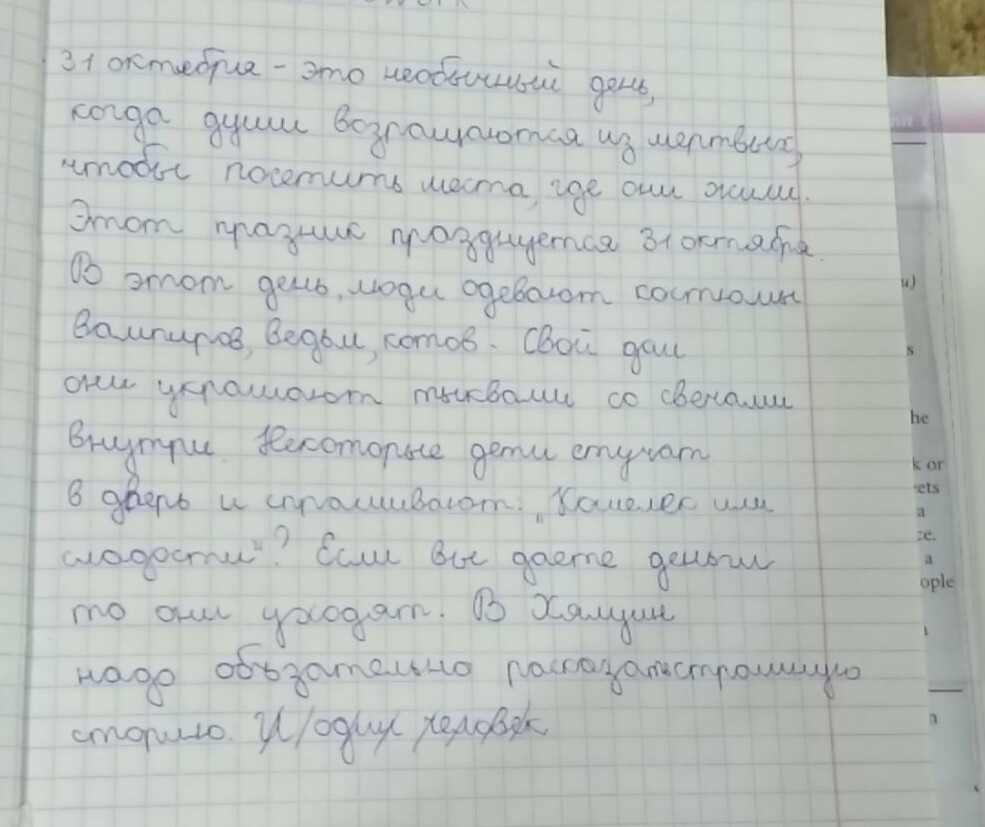 31 октебрия - это необычный день,
когда души возращаются из мертвых,
чтобы посетить места, где они жили.
Этот празник празднуется 31 октября.
В этот день, люди одевают костюмы
вампиров, ведьм, котов. Свой дом
они украшают тыквами со свечами
внутри. Некоторые дети стучат
в дверь и спрашивают: „Кошелек или
сладости“? Если вы даете деньги
то они уходят. В Хялуин
надо обьзательно рассказатьстрашную
сторию. И/один человек
u)
s
he
k or
ets
a
ze.
a
ople